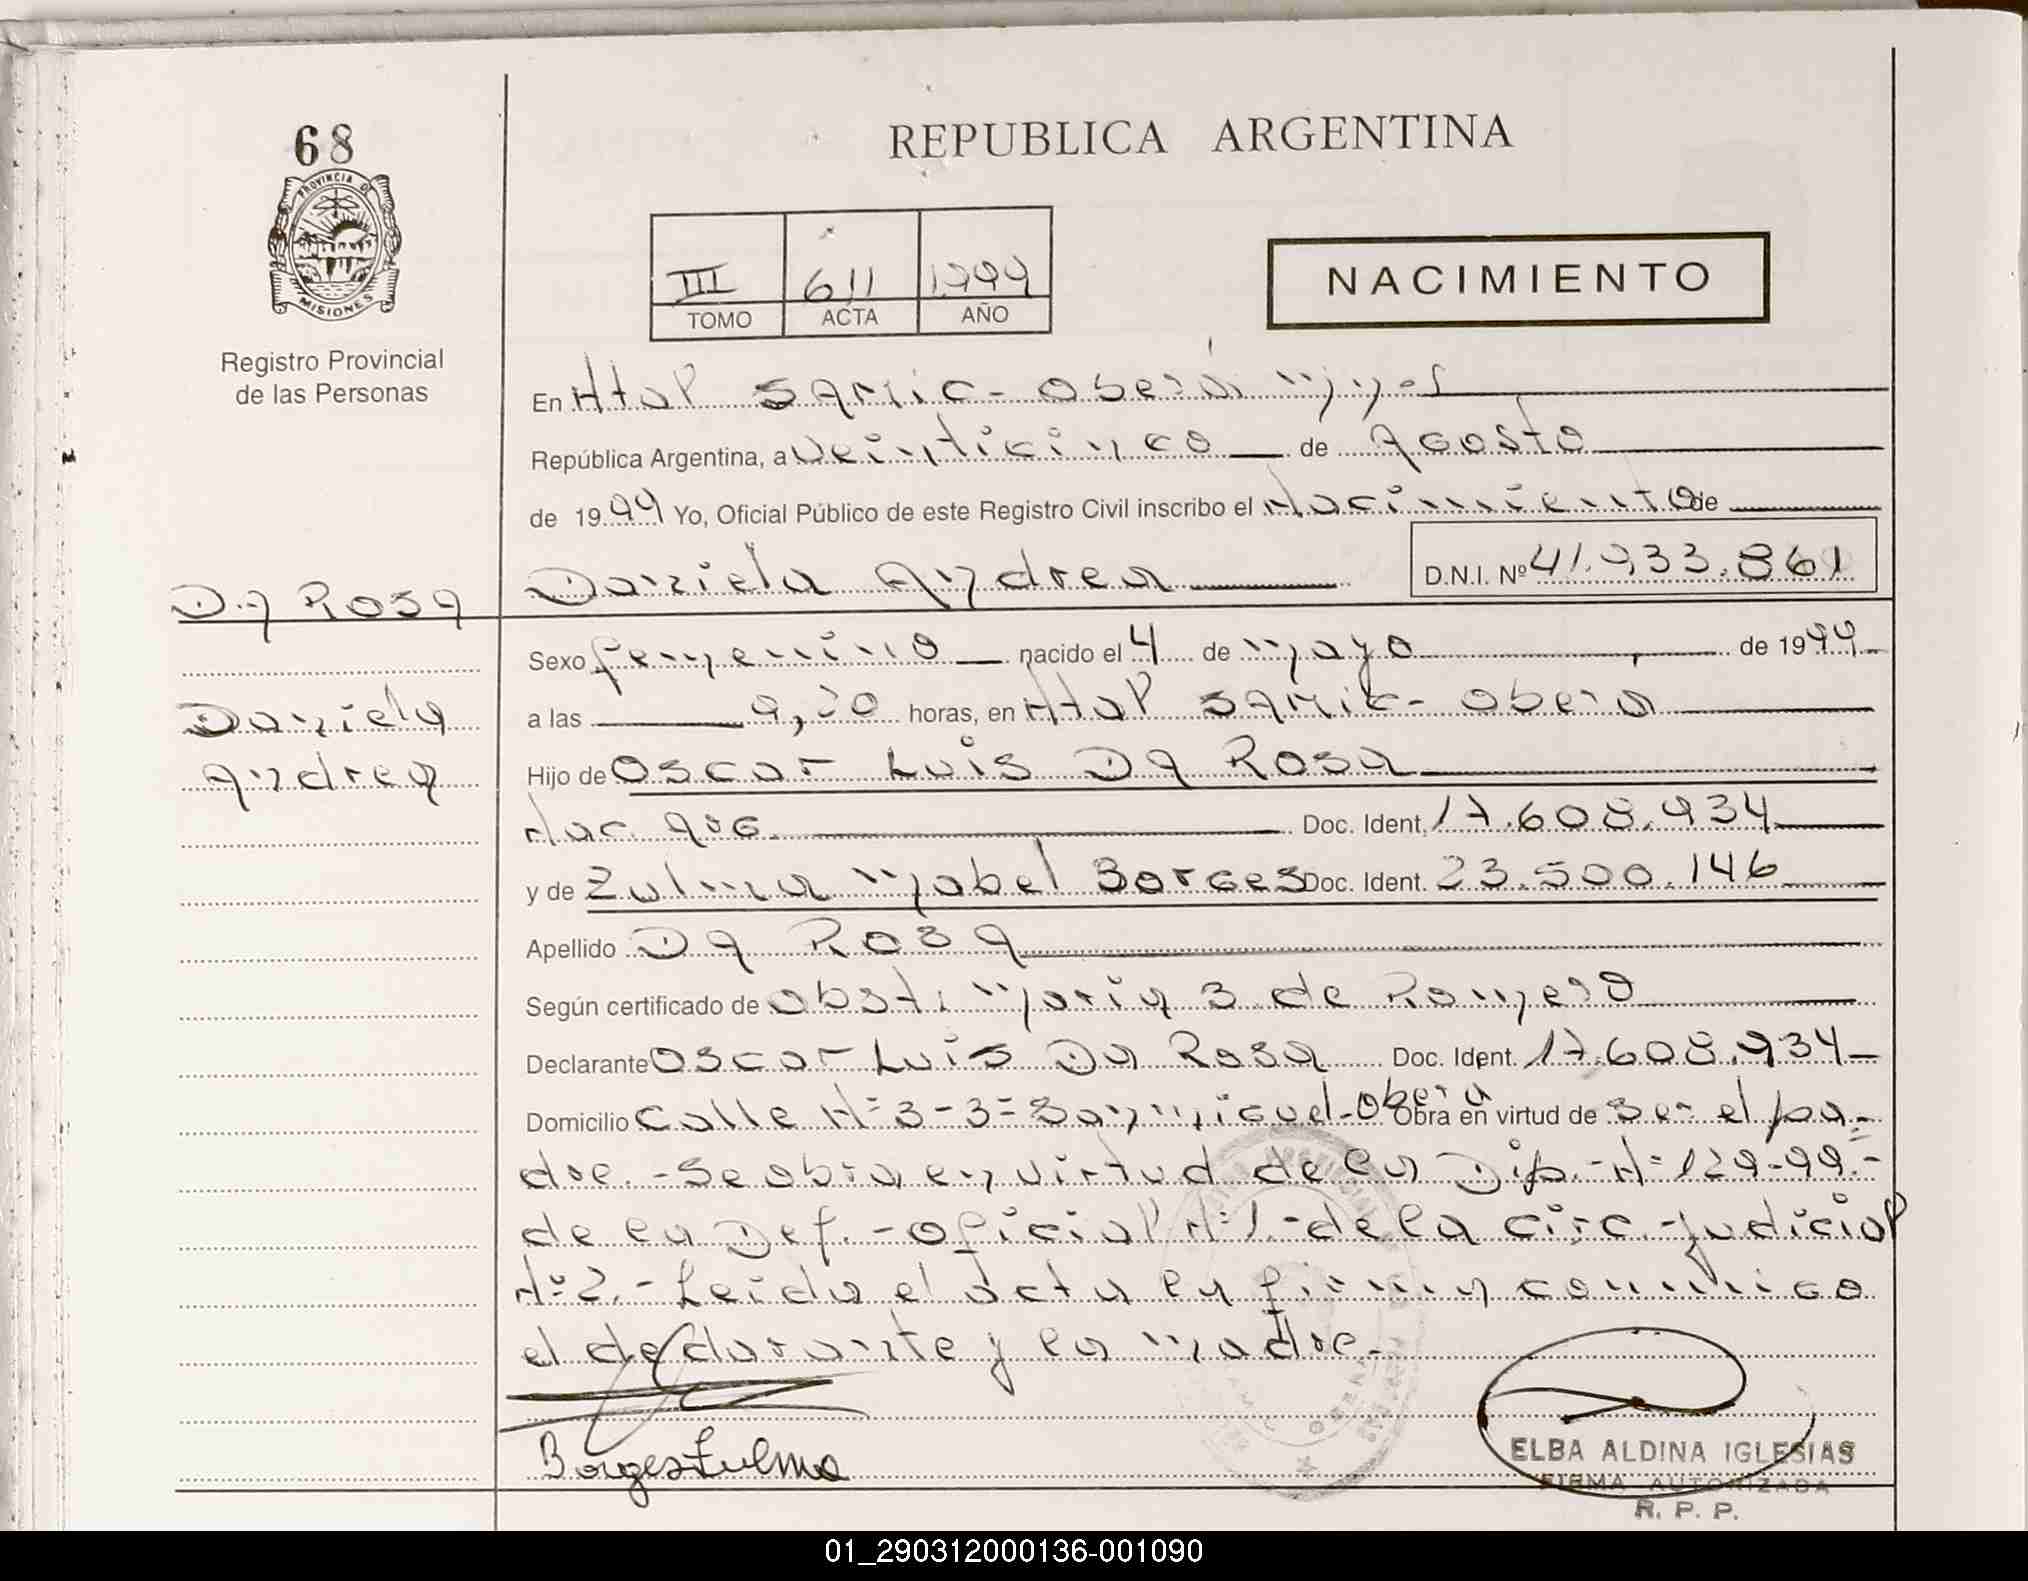 68
PROVINCIA DE
MISIONES
Registro Provincial
de las Personas
REPUBLICA ARGENTINA
III 611 1999
TOMO ACTA AÑO
NACIMIENTO
En Htal SAMIC - Oberá Mnes
República Argentina, a veinticinco de Agosto
de 1999 Yo, Oficial Público de este Registro Civil inscribo el Nacimiento de
Daniela Andrea D.N.I. Nº 41.933.861
Da Rosa
Daniela
Andrea
Sexo femenino nacido el 4 de mayo de 1999
a las 9,20 horas, en Htal SAMIC - Oberá
Hijo de Oscar Luis Da Rosa
Nac. Arg. Doc. Ident. 17.608.934
y de Zulma Mabel Borges Doc. Ident. 23.500.146
Apellido Da Rosa
Según certificado de obst. Maria B de Romero
Declarante Oscar Luis Da Rosa Doc. Ident. 17.608.934
Domicilio calle Nº 3-3= San Miguel - Oberá Obra en virtud de ser el pa=
dre. - Se obra en virtud de la Dip. - Nº 129-99.-
de la Def. - oficial Nº 1. - de la circ. judicial
Nº 2. - Leida el acta la firman conmigo
el declarante y la madre.-
Borges Zulma
ELBA ALDINA IGLESIAS
FIRMA AUTORIZADA
R. P. P.
01_290312000136-001090